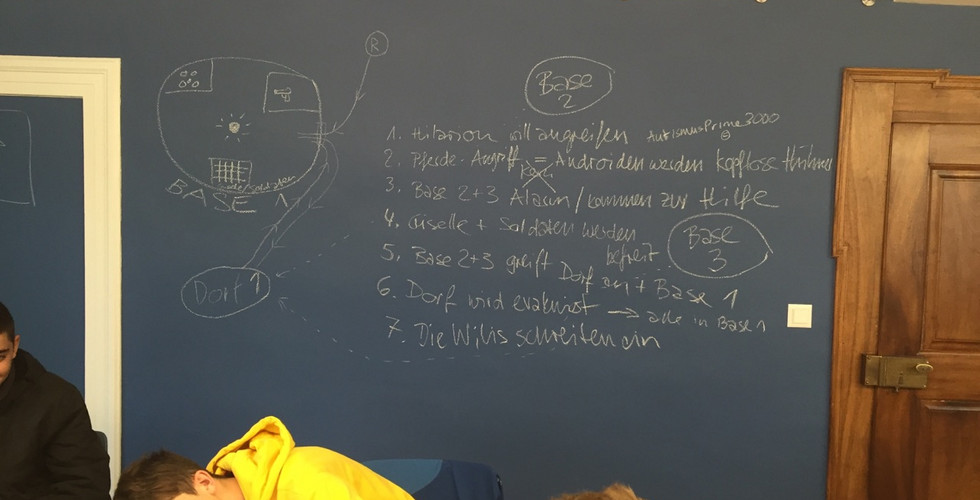 R
Base
2
1. Hilarion will angreifen AutismusPrime3000
2. Pferde-Angriff = Androiden werden kopflose Hühner
3. Base 2+3 Alarm / kommen zur Hilfe
4. Giselle + Soldaten werden
befreit
Base
3
5. Base 2+3 greift Dorf an + Base 1
6. Dorf wird evakuiert → alle in Base 1
7. Die Wilis schreiten ein
BASE 1
Dorf 1